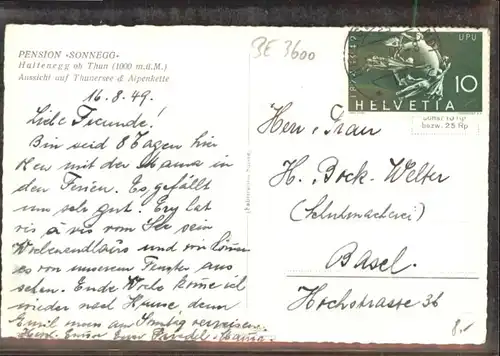 PENSION «SONNEGG»
Haltenegg ob Thun (1000 m.ü.M.)
Aussicht auf Thunersee & Alpenkette
BE 3600
16.8.49.
Liebe Freunde!
Bin seid 8 Tagen hier
mit der Mama in
den Ferien. Es gefällt
uns sehr gut. Ery hat
vis à vis vom See sein
Wochenendhaus und wir können
es von unserem Fenster aus
sehen. Ende Woche komme ich
wieder nach Hause denn
Emil muss am verreisen.
Herzl. Eure
UPU
10
HELVETIA
bezw. 25 Rp
Herr u. Frau
H. Bock-Welter
(Schuhmacherei)
Basel.
Hochstrasse 36
8.-